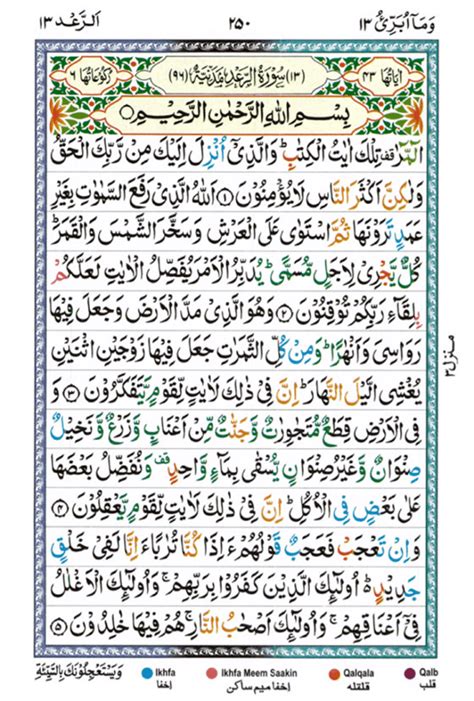 وَمَآ اُبَرِّئُ ١٣
٢٥٠
اَلرَّعْد ١٣
اٰیَاتُهَا ٤٣
(١٣) سُوْرَةُ الرَّعْدِ مَدَنِیَّةٌ (٩٦)
رُكُوْعَاتُهَا ٦
بِسْمِ اللّٰهِ الرَّحْمٰنِ الرَّحِیْمِ
الٓمّٓرٰ قف تِلْكَ اٰیٰتُ الْكِتٰبِ ؕ وَالَّذِیْۤ اُنْزِلَ اِلَیْكَ مِنْ رَّبِّكَ الْحَقُّ
وَلٰكِنَّ اَكْثَرَ النَّاسِ لَا یُؤْمِنُوْنَ ﴿۱﴾ اَللّٰهُ الَّذِیْ رَفَعَ السَّمٰوٰتِ بِغَیْرِ
عَمَدٍ تَرَوْنَهَا ثُمَّ اسْتَوٰی عَلَی الْعَرْشِ وَسَخَّرَ الشَّمْسَ وَالْقَمَرَ ؕ
كُلٌّ یَّجْرِیْ لِاَجَلٍ مُّسَمًّی ؕ یُدَبِّرُ الْاَمْرَ یُفَصِّلُ الْاٰیٰتِ لَعَلَّكُمْ
بِلِقَآءِ رَبِّكُمْ تُوْقِنُوْنَ ﴿۲﴾ وَهُوَ الَّذِیْ مَدَّ الْاَرْضَ وَجَعَلَ فِیْهَا
رَوَاسِیَ وَاَنْهٰرًا ؕ وَمِنْ كُلِّ الثَّمَرٰتِ جَعَلَ فِیْهَا زَوْجَیْنِ اثْنَیْنِ
یُغْشِی الَّیْلَ النَّهَارَ ؕ اِنَّ فِیْ ذٰلِكَ لَاٰیٰتٍ لِّقَوْمٍ یَّتَفَكَّرُوْنَ ﴿۳﴾
وَفِی الْاَرْضِ قِطَعٌ مُّتَجٰوِرٰتٌ وَّجَنّٰتٌ مِّنْ اَعْنَابٍ وَّزَرْعٌ وَّنَخِیْلٌ
صِنْوَانٌ وَّغَیْرُ صِنْوَانٍ یُّسْقٰی بِمَآءٍ وَّاحِدٍ قف وَنُفَضِّلُ بَعْضَهَا
عَلٰی بَعْضٍ فِی الْاُكُلِ ؕ اِنَّ فِیْ ذٰلِكَ لَاٰیٰتٍ لِّقَوْمٍ یَّعْقِلُوْنَ ﴿۴﴾
وَاِنْ تَعْجَبْ فَعَجَبٌ قَوْلُهُمْ ءَاِذَا كُنَّا تُرٰبًا ءَاِنَّا لَفِیْ خَلْقٍ
جَدِیْدٍ ؕ اُولٰٓئِكَ الَّذِیْنَ كَفَرُوْا بِرَبِّهِمْ ۚ وَاُولٰٓئِكَ الْاَغْلٰلُ
فِیْۤ اَعْنَاقِهِمْ ۚ وَاُولٰٓئِكَ اَصْحٰبُ النَّارِ ۚ هُمْ فِیْهَا خٰلِدُوْنَ ﴿۵﴾
منزل ٣
وَیَسْتَعْجِلُوْنَكَ بِالسَّیِّئَةِ
Ikhfa
اخفا
Ikhfa Meem Saakin
اخفا میم ساكن
Qalqala
قلقله
Qalb
قلب